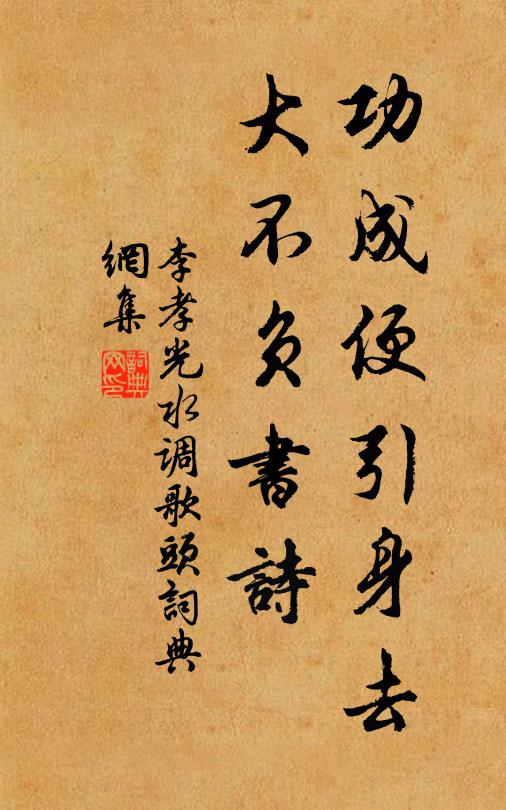 功成便引身去
大不負書詩
李孝光水調歌頭詞典
網集
詞典
网印